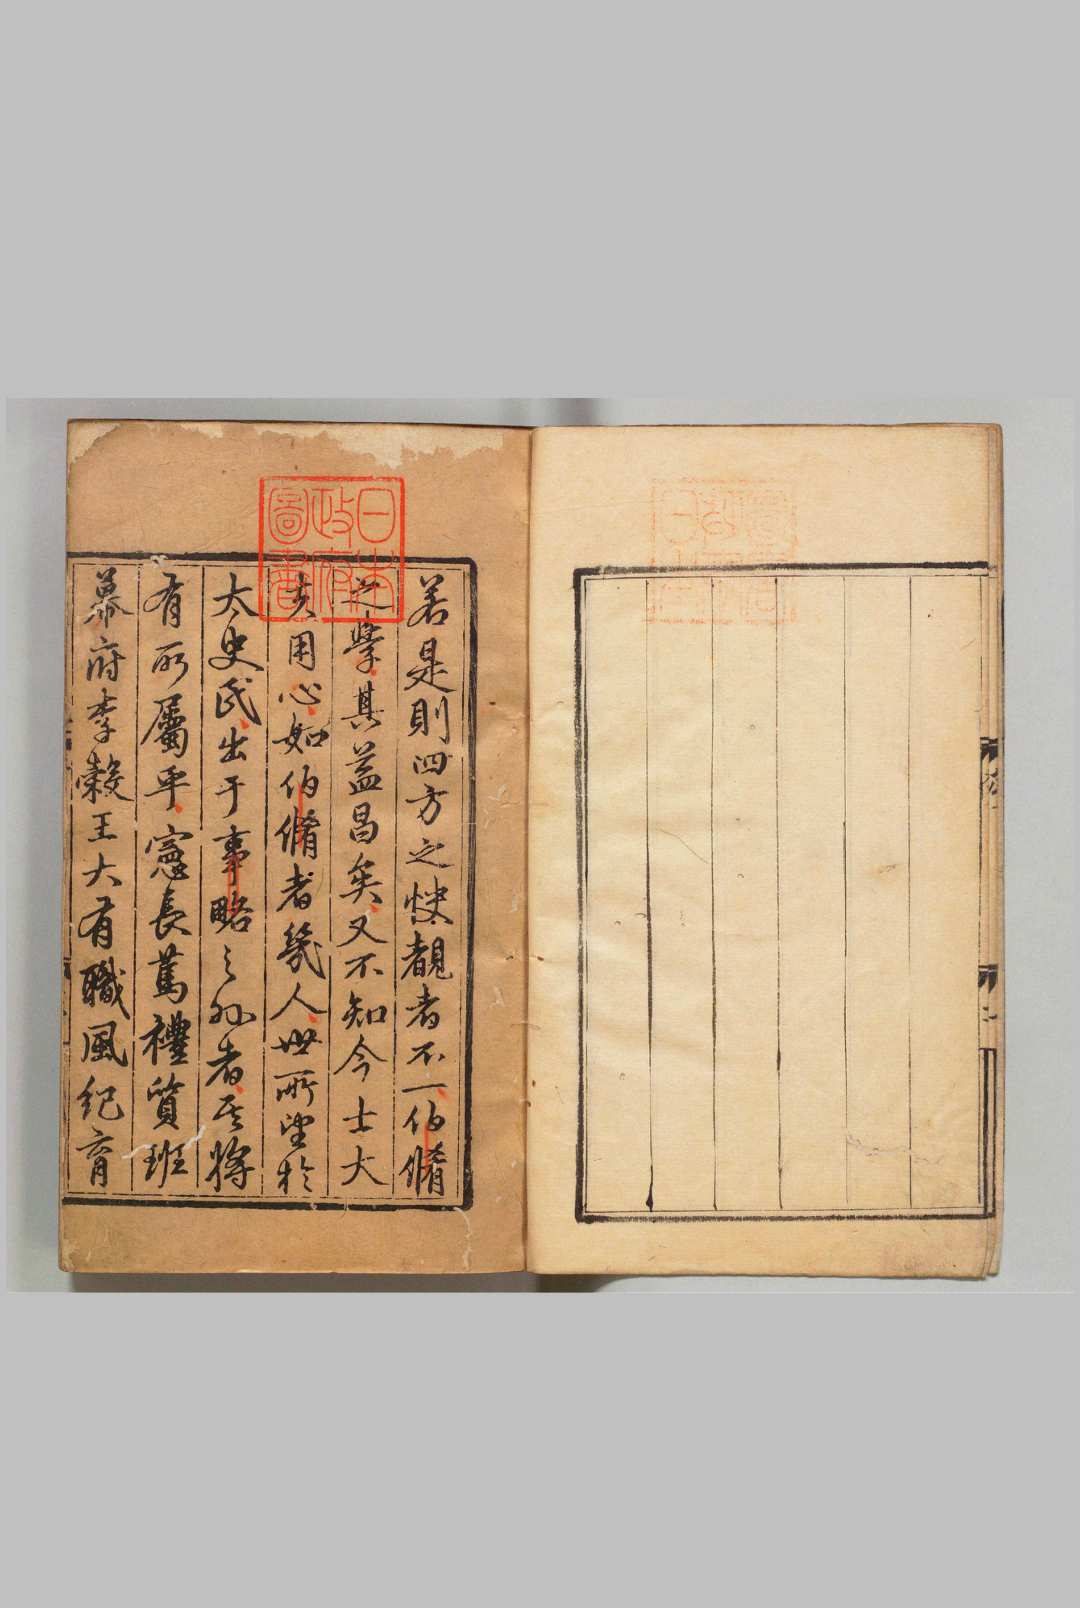 若是則四方之快覩者不一伯脩
之學其益昌矣又不知今士大
夫用心如伯脩者幾人世所望於
太史氏出于事略之外者其將
有所屬乎憲長篤禮質班
幕府李榖王大有職風紀育
日本
政府
圖書